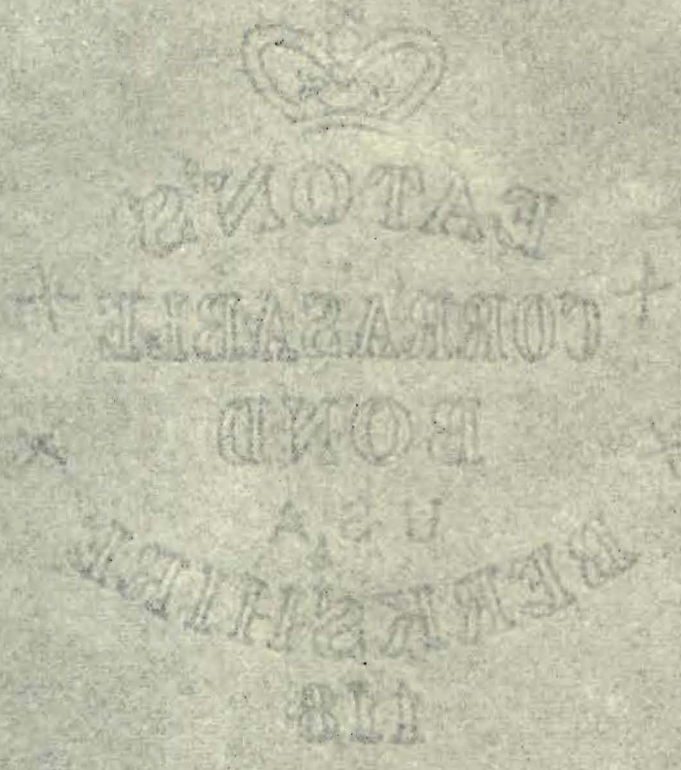 EATON'S
CORRASABLE
BOND
USA
BERKSHIRE
118